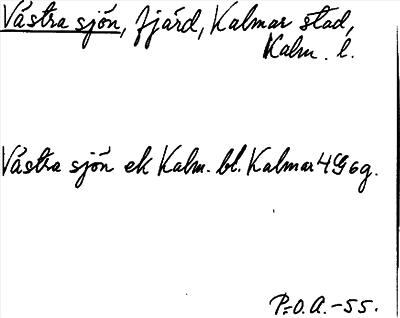 Västra sjön, fjärd, Kalmar stad,
Kalm. l.
Västra sjön ek Kalm. bl. Kalmar 4G6g.
P.O.A.-55.